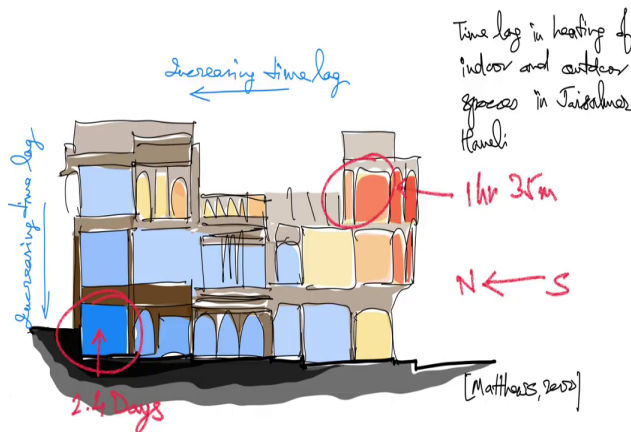 Time lag in heating of
indoor and outdoor
spaces in Jaisalmer
Haveli
Increasing time lag
Increasing time lag
1 hr 35 m
N ← S
2.4 Days
[Matthews, 2000]